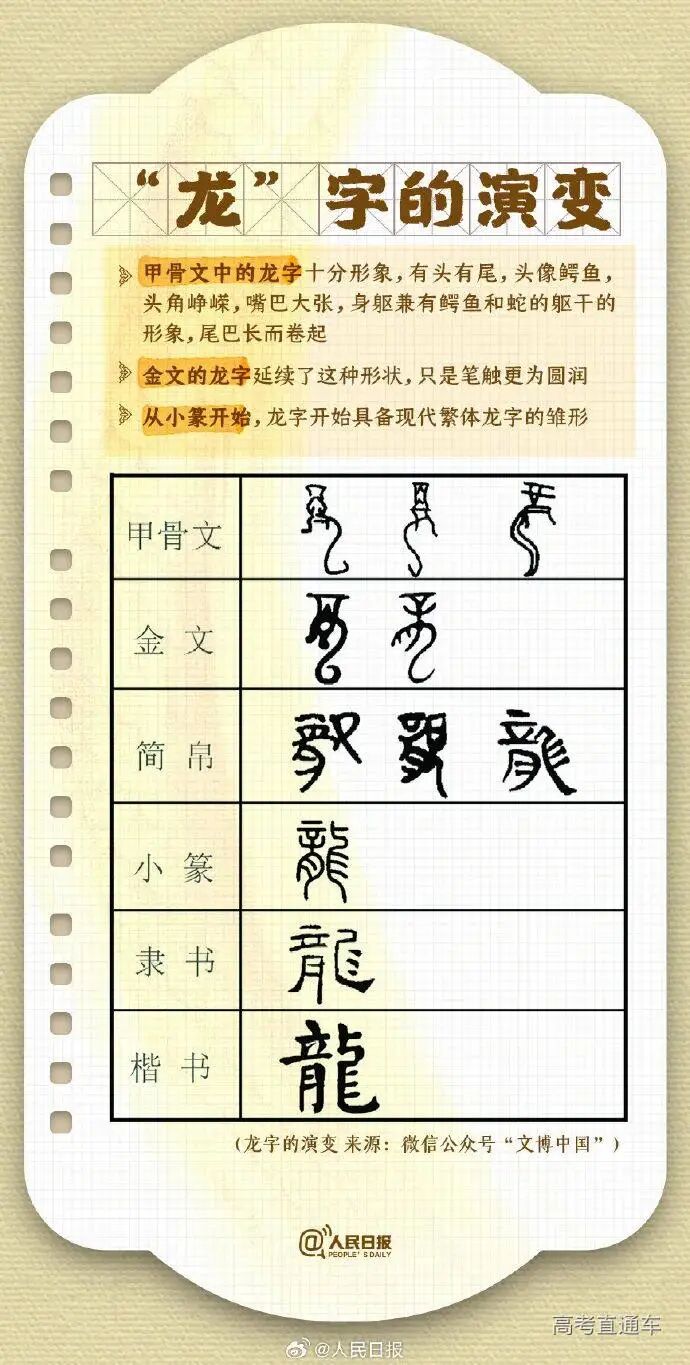 “龙”字的演变
甲骨文中的龙字十分形象，有头有尾，头像鳄鱼，
头角峥嵘，嘴巴大张，身躯兼有鳄鱼和蛇的躯干的
形象，尾巴长而卷起
金文的龙字延续了这种形状，只是笔触更为圆润
从小篆开始，龙字开始具备现代繁体龙字的雏形
甲骨文
金文
简帛
龍
小篆 龍
隶书 龍
楷书 龍
(龙字的演变 来源：微信公众号“文博中国”)
@人民日报
PEOPLE'S DAILY
高考直通车
@人民日报